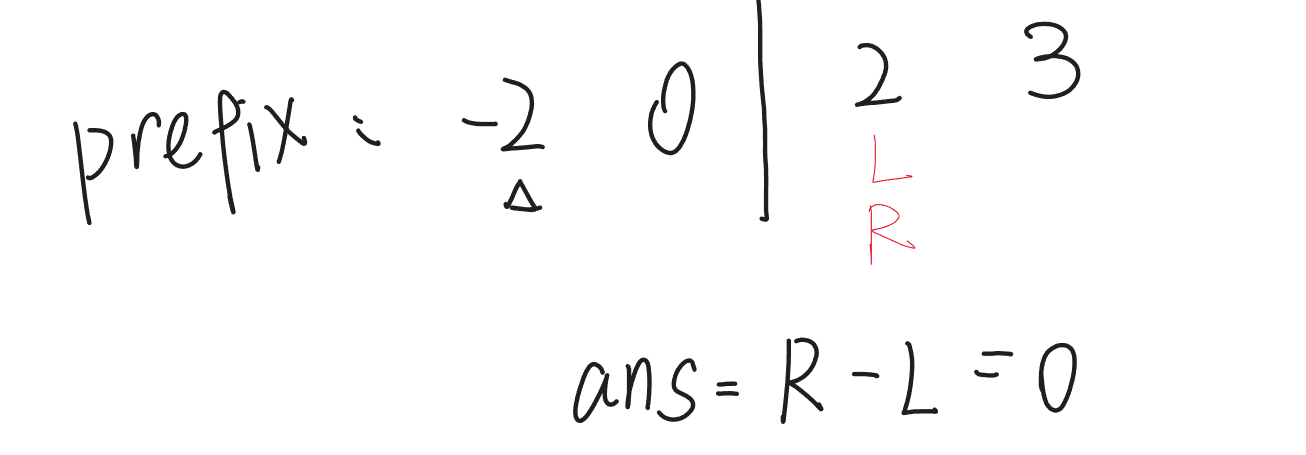 prefix : -2 0 | 2 3
Δ L
R
ans = R - L = 0